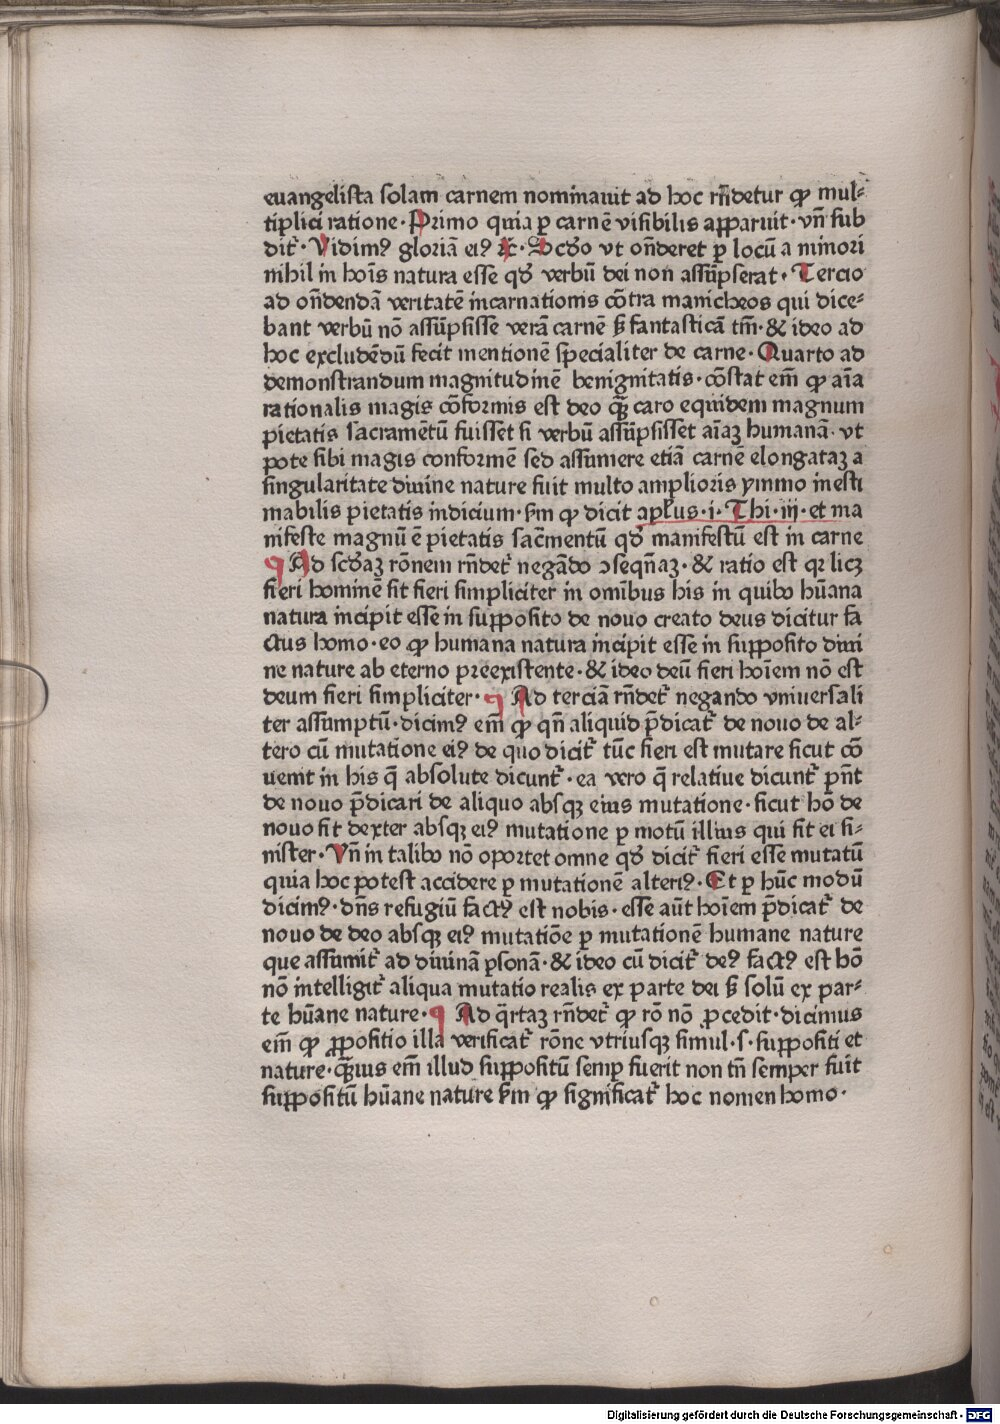 euangelista solam carnem nominauit ad hoc rñdetur ꝙ mul⸗
tiplici ratione · Primo quia ꝑ carnē visibilis apparuit · vñ sub
dit᷑ · Vidimꝰ gloriā eiꝰ ⁊c̄ · Scd̄o vt oñderet ꝑ locū a minori
nihil in hoı̄s natura esse qd̄ verbū dei non assūpserat · Tercio
ad oñdendā veritatē incarnationis cōtra manicheos qui dice⸗
bant verbū nō assūpsisse verā carnē s̄ fantasticā tm̄ · & ideo ad
hoc excludēdū fecit mentionē specialiter de carne · Quarto ad
demonstrandum magnitudinē benignitatis · cōstat em̄ ꝙ aı̄a
rationalis magis cōformis est deo ꝙ̄ caro equidem magnum
pietatis sacramētū fuisset si verbū assūpsisset aı̄aꝫ humanā · vt
pote sibi magis conformē sed assumere etiā carnē elongataꝫ a
singularitate diuine nature fuit multo amplioris ymmo inesti
mabilis pietatis indicium · s̄m ꝙ dicit apl̄us · i · Thi · iij · et ma
nifeste magnū ē pietatis sac̄mentū qd̄ manifestū est in carne
¶ Ad scd̄aꝫ rōnem rñdet᷑ negādo ↄseqn̄aꝫ · & ratio est qꝛ licꝫ
fieri hominē sit fieri simpliciter in omı̄bus his in quibo hūana
natura incipit esse in supposito de nouo creato deus dicitur fa
ctus homo · eo ꝙ humana natura incipit esse in supposito diui
ne nature ab eterno preexistente · & ideo deū fieri hoı̄em nō est
deum fieri simpliciter · ¶ Ad terciā rñdet᷑ negando vniuersali
ter assumptū · dicimꝰ em̄ ꝙ qn̄ aliquid p̄dicat᷑ de nouo de al⸗
tero cū mutatione eiꝰ de quo dicit᷑ tūc fieri est mutare sicut cō
uenit in his q̄ absolute dicunt᷑ · ea vero q̄ relatiue dicunt᷑ pn̄t
de nouo p̄dicari de aliquo absqꝫ eius mutatione · sicut hō de
nouo fit dexter absqꝫ eiꝰ mutatione ꝑ motū illius qui fit ei si⸗
nister · Vñ in talibo nō oportet omne qd̄ dicit᷑ fieri esse mutatū
quia hoc potest accidere ꝑ mutationē alteriꝰ · Et ꝑ hūc modū
dicimꝰ · dn̄s refugiū factꝰ est nobis · esse aūt hoı̄em p̄dicat᷑ de
nouo de deo absqꝫ eiꝰ mutatiōe ꝑ mutationē humane nature
que assumit᷑ ad diuinā ꝑsonā · & ideo cū dicit᷑ deꝰ factꝰ est hō
nō intelligit᷑ aliqua mutatio realis ex parte dei s̄ solū ex par⸗
te hūane nature · ¶ Ad q̄rtaꝫ rñdet᷑ ꝙ rō nō ꝓcedit · dicimus
em̄ ꝙ ꝓpositio illa verificat᷑ rōne vtriusqꝫ simul · s · suppositi et
nature · ꝙ̄uis em̄ illud suppositū semꝑ fuerit non tn̄ semper fuit
suppositū hūane nature s̄m ꝙ significat᷑ hoc nomen homo ·
Digitalisierung gefördert durch die Deutsche Forschungsgemeinschaft - DFG